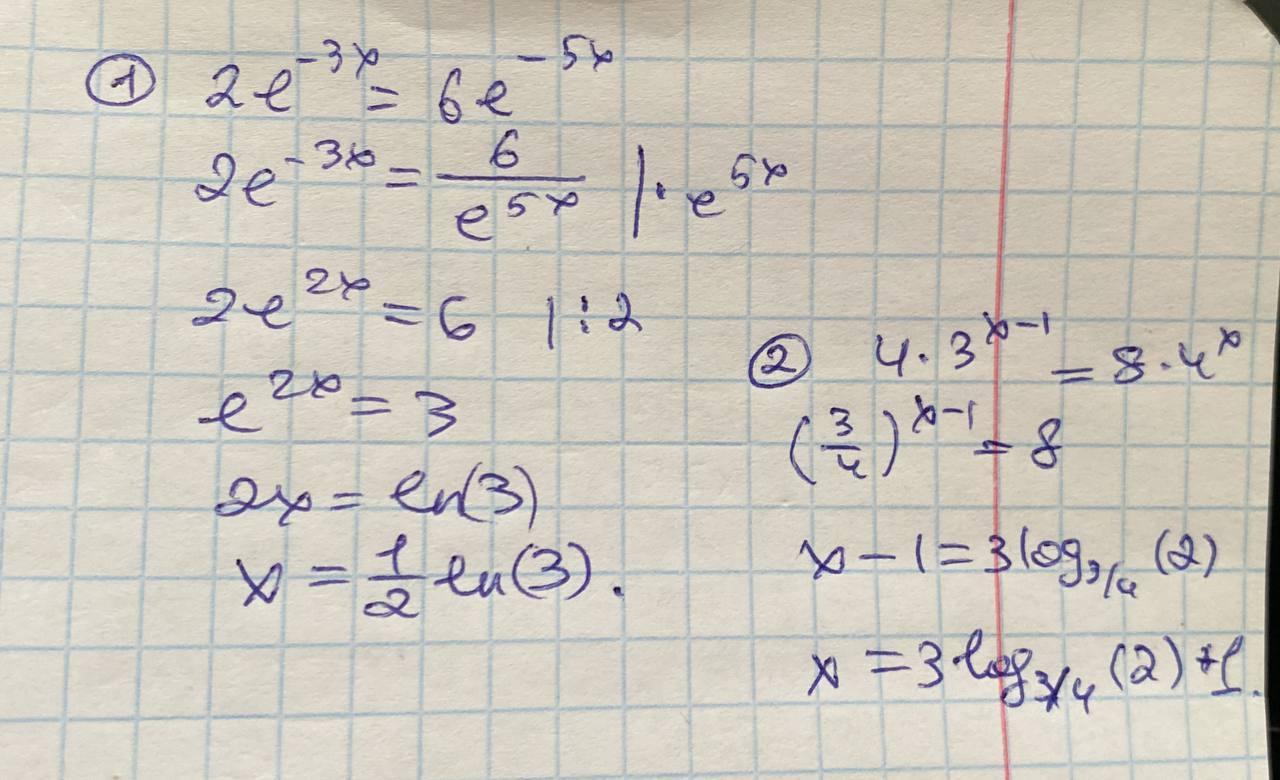 ① 2e^{-3x} = 6e^{-5x}
2e^{-3x} = \frac{6}{e^{5x}} | · e^{5x}
2e^{2x} = 6 | : 2
e^{2x} = 3
2x = ln(3)
x = \frac{1}{2} ln(3).
② 4 · 3^{x-1} = 8 · 4^{x}
(\frac{3}{4})^{x-1} = 8
x - 1 = 3 log_{3/4} (2)
x = 3 log_{3/4} (2) + 1.